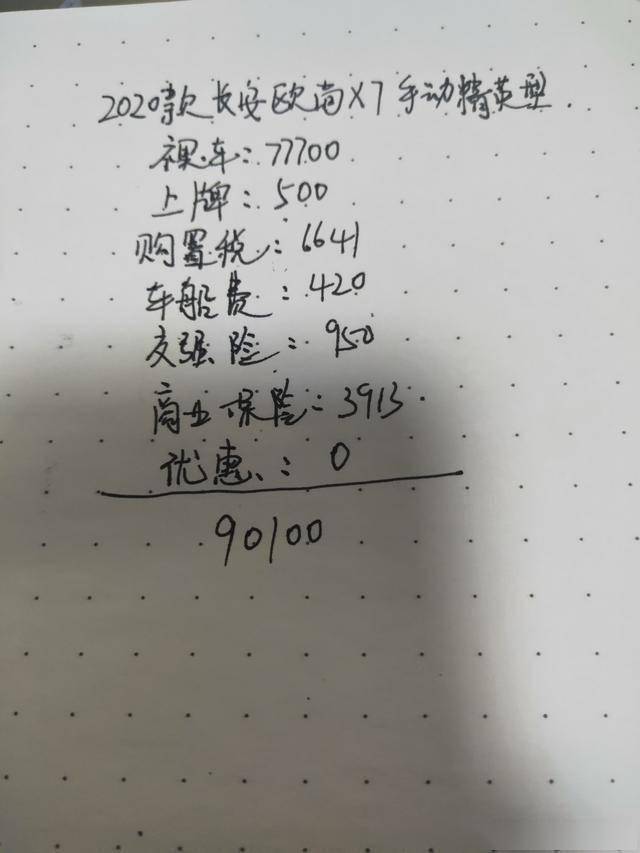 2020款长安欧尚X7手动精英型
裸车:77700
上牌:500
购置税:6641
车船费:420
交强险:950
商业保险:3913
优惠:0
90100